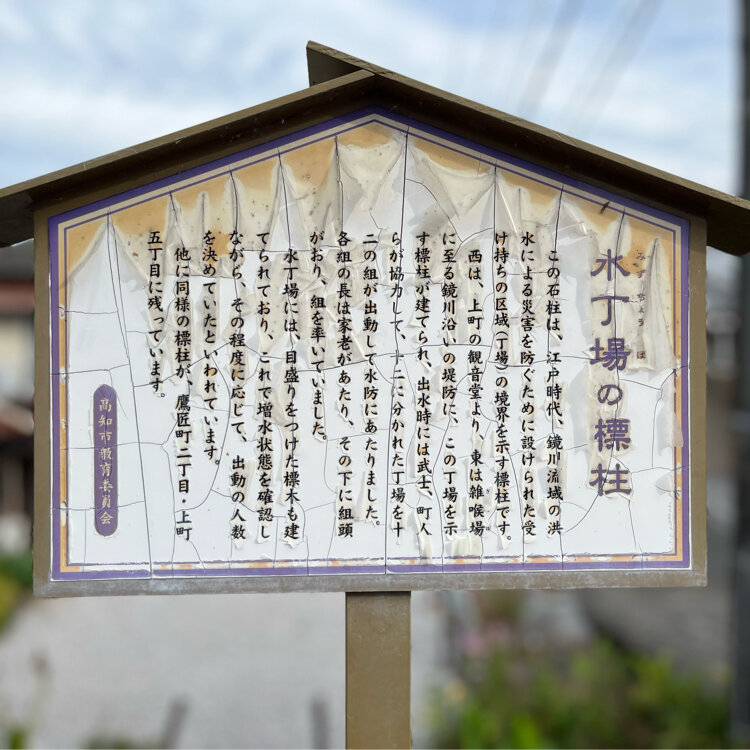 水丁場の標柱
みずちょうば
この石柱は、江戸時代、鏡川流域の洪
水による災害を防ぐために設けられた受
け持ちの区域(丁場)の境界を示す標柱です。
西は、上町の観音堂より、東は雑喉場
に至る鏡川沿いの堤防に、この丁場を示
す標柱が建てられ、出水時には武士、町人
らが協力して、十二に分かれた丁場を十
二の組が出動して水防にあたりました。
各組の長は家老があたり、その下に組頭
がおり、組を率いていました。
水丁場には、目盛りをつけた標木も建
てられており、これで増水状態を確認し
ながら、その程度に応じて、出動の人数
を決めていたといわれています。
他に同様の標柱が、鷹匠町二丁目・上町
五丁目に残っています。
高知市教育委員会